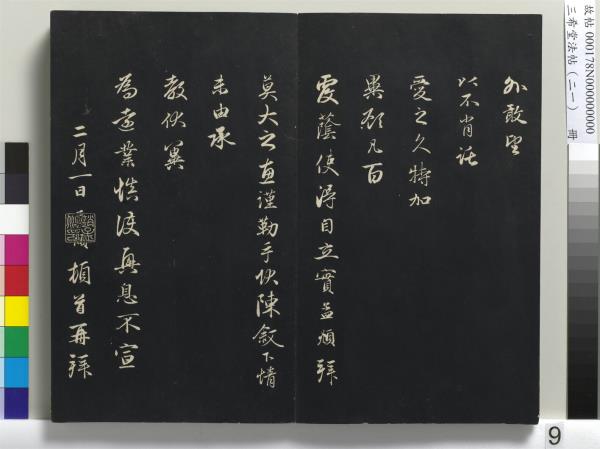 故帖 000178N000000000
三希堂法帖(二一) 冊
外敢望
以不肖託
愛之久特加
顧凡百
覆蔭使得自立實孟頫拜
莫大之惠謹勒手狀陳敘下情
未由承
教伏冀
為遠業慎護興息不宣
二月一日 頓首再拜
9